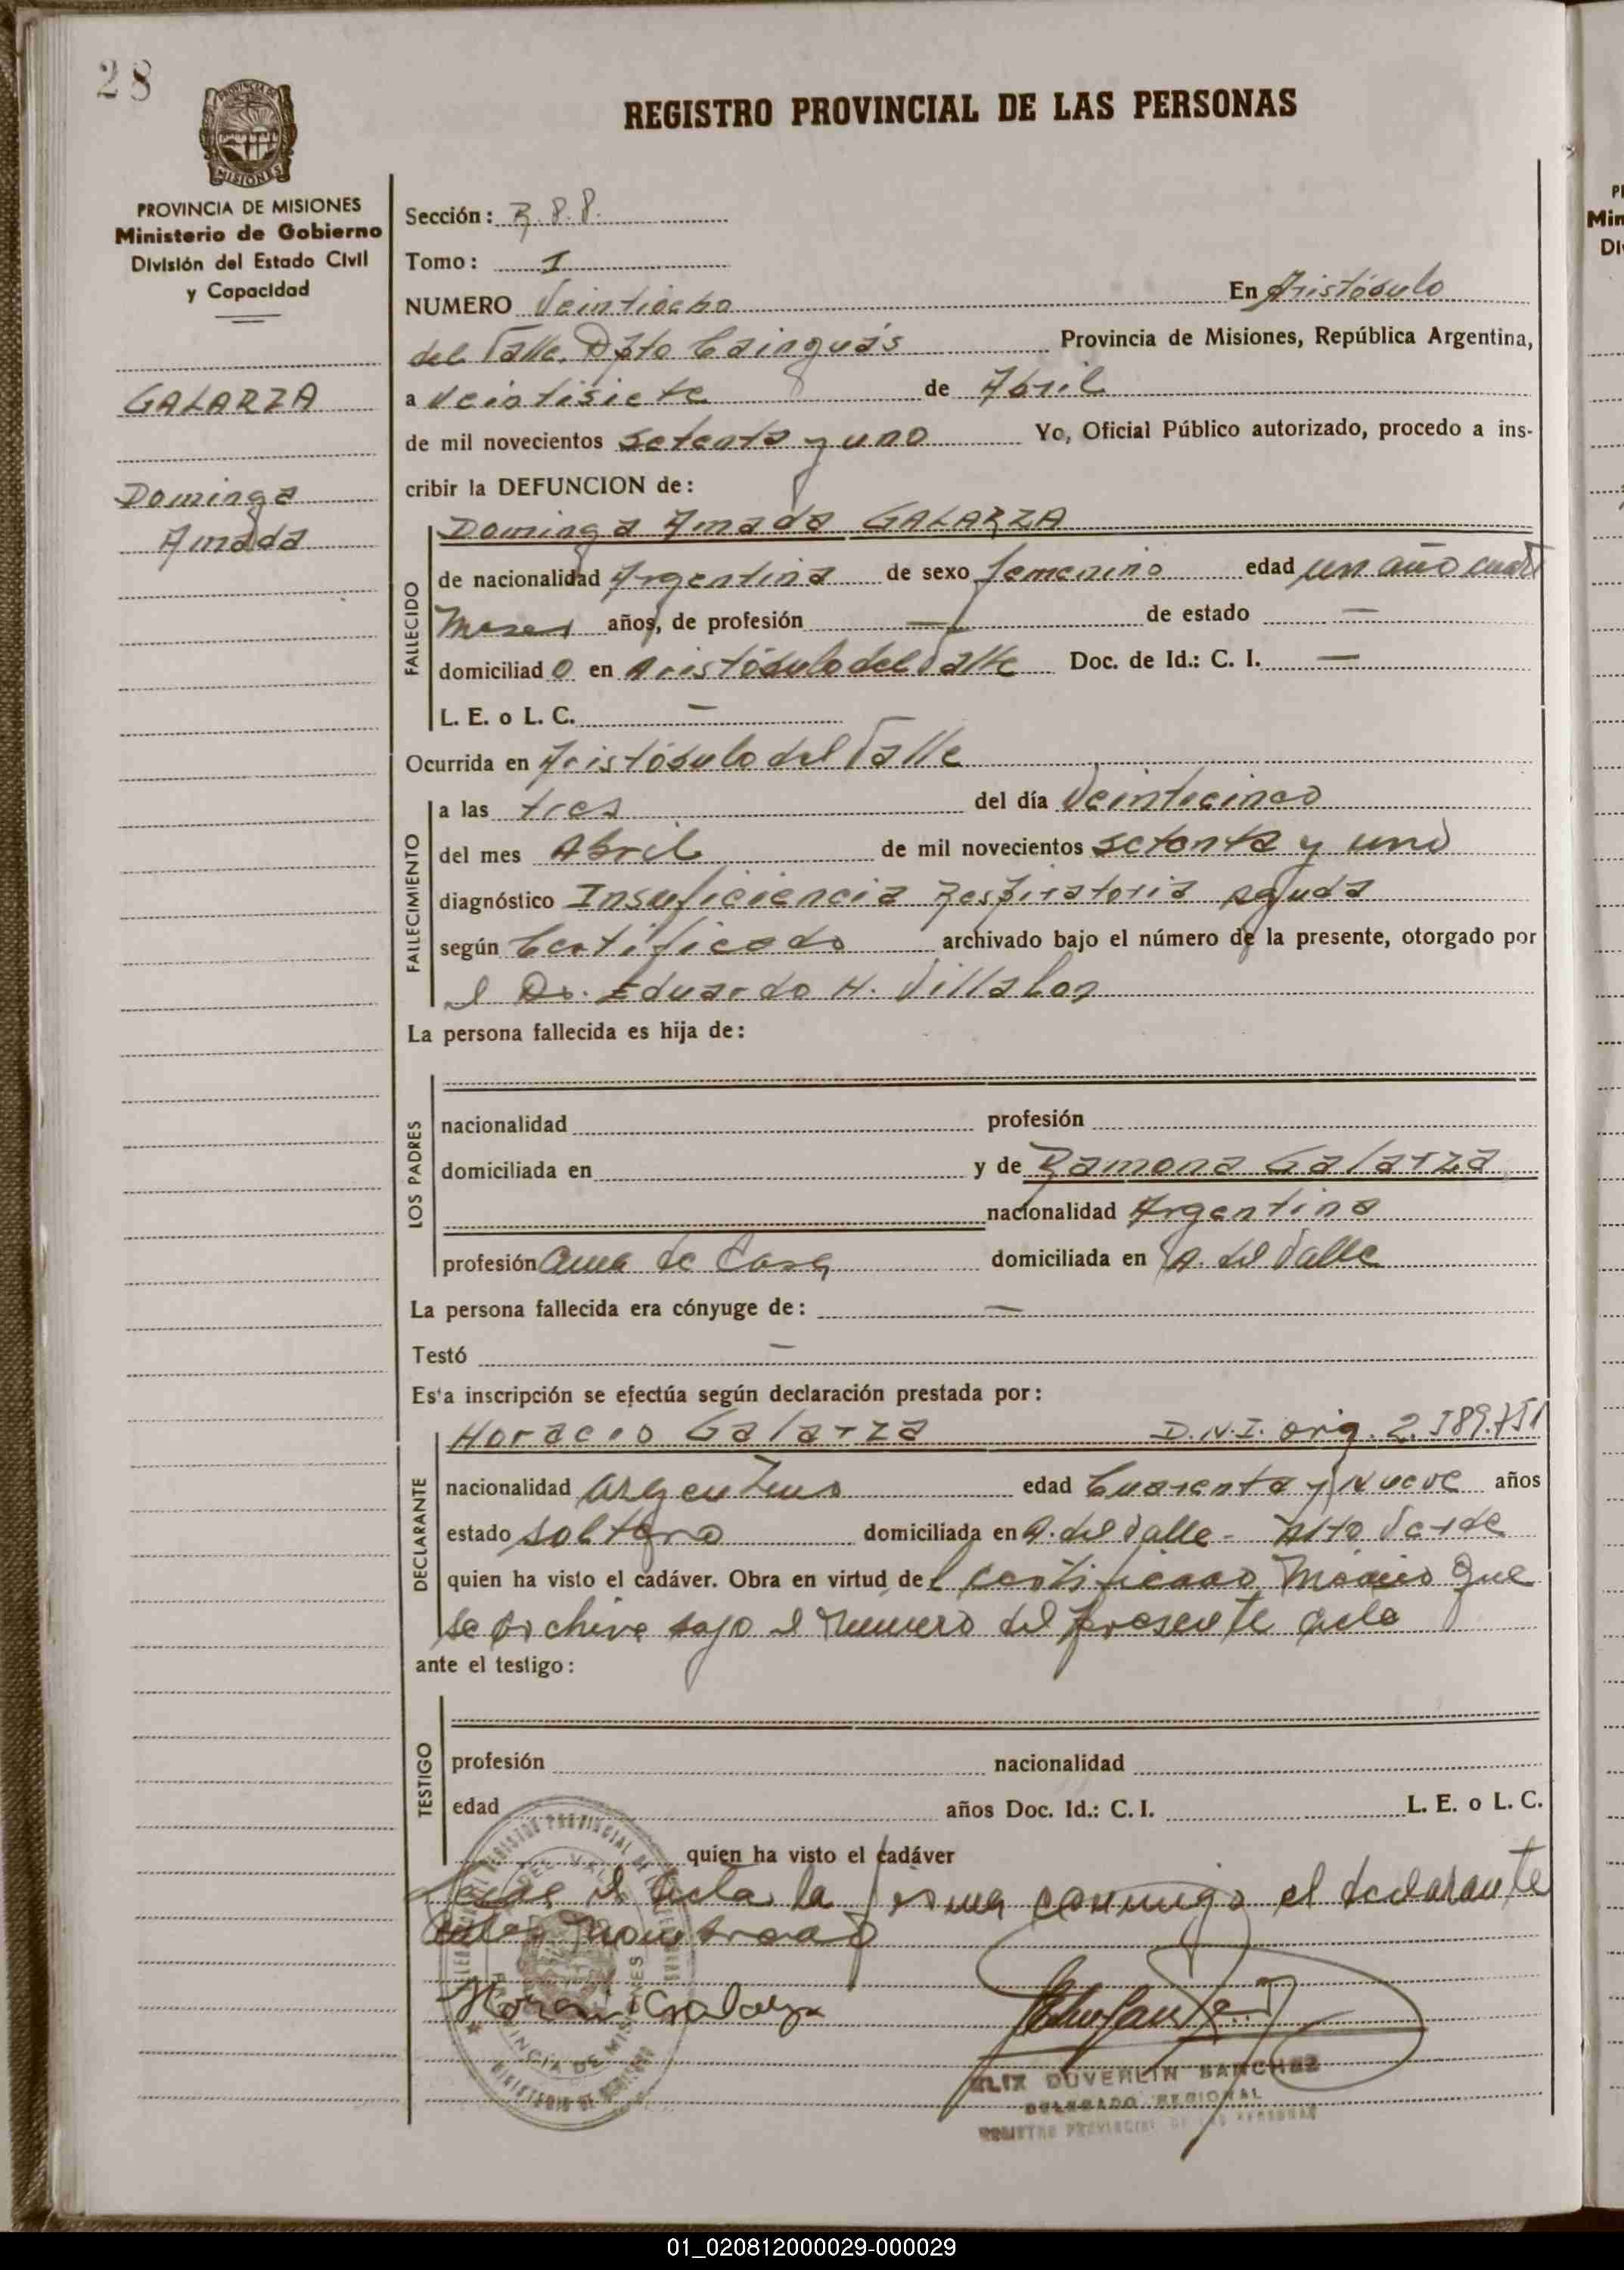 28
PROVINCIA DE MISIONES
PROVINCIA DE MISIONES
Ministerio de Gobierno
División del Estado Civil
y Capacidad
GALARZA
Dominga
Amada
REGISTRO PROVINCIAL DE LAS PERSONAS
Sección: R.P.P.
Tomo: I
NUMERO Veintiocho En Aristóbulo
del Valle. Dpto Cainguás Provincia de Misiones, República Argentina,
a veintisiete de Abril
de mil novecientos setenta y uno Yo, Oficial Público autorizado, procedo a ins-
cribir la DEFUNCION de:
Dominga Amada GALARZA
FALLECIDO
de nacionalidad Argentina de sexo femenino edad un año cuatr
Meses años, de profesión — de estado —
domiciliad o en Aristóbulo del Valle Doc. de Id.: C. I. —
L. E. o L. C. —
Ocurrida en Aristóbulo del Valle
FALLECIMIENTO
a las tres del día Veinticinco
del mes Abril de mil novecientos setenta y uno
diagnóstico Insuficiencia Respiratoria aguda
según Certificado archivado bajo el número de la presente, otorgado por
el Dr. Eduardo H. Villalon
La persona fallecida es hija de:
LOS PADRES
nacionalidad profesión
domiciliada en y de Ramona Galarza
nacionalidad Argentina
profesión ama de Casa domiciliada en A. del Valle
La persona fallecida era cónyuge de: —
Testó —
Esta inscripción se efectúa según declaración prestada por:
DECLARANTE
Horacio Galarza D.N.I. orig. 2.589.751
nacionalidad argentino edad Cuarenta y Nueve años
estado soltero domiciliada en A. del Valle - Alto Verde
quien ha visto el cadáver. Obra en virtud del certificado Médico que
se archiva bajo el número del presente acta
ante el testigo:
TESTIGO
profesión nacionalidad
edad años Doc. Id.: C. I. L. E. o L. C.
quien ha visto el cadáver
el acta la firma conmigo el declarante
Horacio Galarza
REGISTRO PROVINCIAL DE LAS PERSONAS
PROVINCIA DE MISIONES
MINISTERIO DE GOBIERNO
ELIX DUVERLIN SANCHEZ
DELEGADO REGIONAL
REGISTRO PROVINCIAL DE LAS PERSONAS
01_020812000029-000029